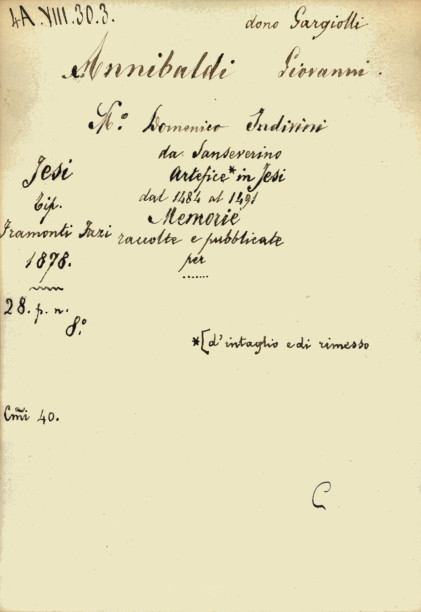 4A.VIII.30.3.
dono Gargiolli
Annibaldi Giovanni.
M.º Domenico Indivini
da Sanseverino
Jesi
Artefice* in Jesi
Tip.
dal 1484 al 1491
Memorie
Framonti Fazi
raccolte e pubblicate
1878.
per
.......
28. p. n.
8.º
*[d'intaglio e di rimesso
Cm̃i 40.
C